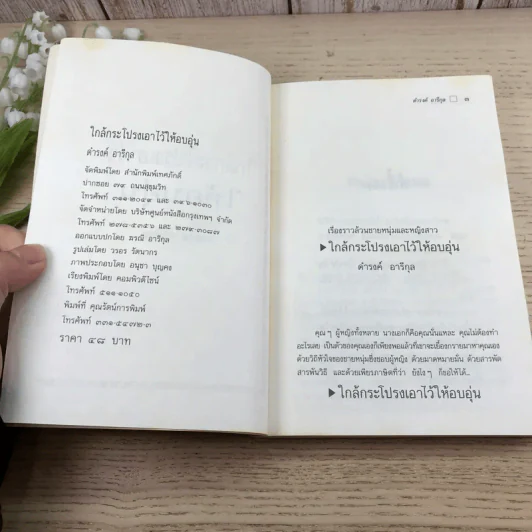 ใกล้กระโปรงเอาไว้ให้อบอุ่น
ดำรงค์ อารีกุล
จัดพิมพ์โดย สำนักพิมพ์เทศภักดิ์
ปากซอย ๗๙ ถนนสุขุมวิท
โทรศัพท์ ๓๑๑-๒๐๔๙ และ ๓๙๖-๑๐๓๐
จัดจำหน่ายโดย บริษัทศูนย์หนังสือกรุงเทพฯ จำกัด
โทรศัพท์ ๒๗๘-๔๕๓๖ และ ๒๗๙-๓๐๘๗
ออกแบบปกโดย มรณี อารีกุล
รูปเล่มโดย วรอร รัตนากร
ภาพประกอบโดย อนุชา บุญคง
เรียงพิมพ์โดย คอมพิวดีไซน์
โทรศัพท์ ๕๑๑-๑๐๕๐
พิมพ์ที่ คุณรัตน์การพิมพ์
โทรศัพท์ ๓๓๑-๕๔๗๒-๓
ราคา ๔๘ บาท
ดำรงค์ อารีกุล □ ๓
เรื่องราวล้วนชายหนุ่มและหญิงสาว
▶ใกล้กระโปรงเอาไว้ให้อบอุ่น
ดำรงค์ อารีกุล
คุณๆ ผู้หญิงทั้งหลาย นางเอกก็คือคุณนั่นแหละ คุณไม่ต้องทำ
อะไรเลย เป็นตัวของคุณเองก็เพียงพอแล้วที่เขาจะเยื้องกรายมาหาคุณเอง
ด้วยวิถีหัวใจของชายหนุ่มซึ่งชอบผู้หญิง ด้วยมาดหมายมั่น ด้วยสารพัด
สารพันวิธี และด้วยเพียรภาษิตที่ว่า ยังไงๆ ก็ขอให้ได้..
▶ใกล้กระโปรงเอาไว้ให้อบอุ่น